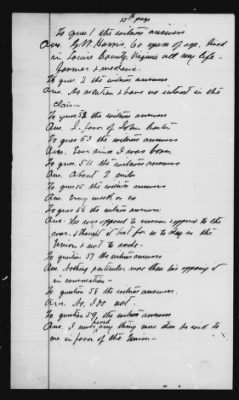 15th page
To ques 1 the witness answers
Ans. G. W. Harris, 60 years of age, lived
in Louisa County, Virginia all my life.
Farmer & mechanic.
To ques. 2 the witness answers
Ans. No relation & have no interest in the
claim.
To ques 52 the witness answers
Ans. I favor of John
To ques 53 the witness answers
Ans. Ever since I was born.
To ques 54 the witness answers
Ans. About 2 miles
To ques 55 the witness answers
Ans. Very much so
To ques 56 the witness answers
Ans. He was opposed to secession & opposed to the
war. & thought it best for us to stay in the
Union & not to secede.
To question 57 the witness answers
Ans. Nothing particular more than his opposing it
in conversation.
To question 58 the witness answers.
Ans. No, I do not.
To question 59, the witness answers
Ans. I never heard any thing more than he said to
me in favor of the Union.